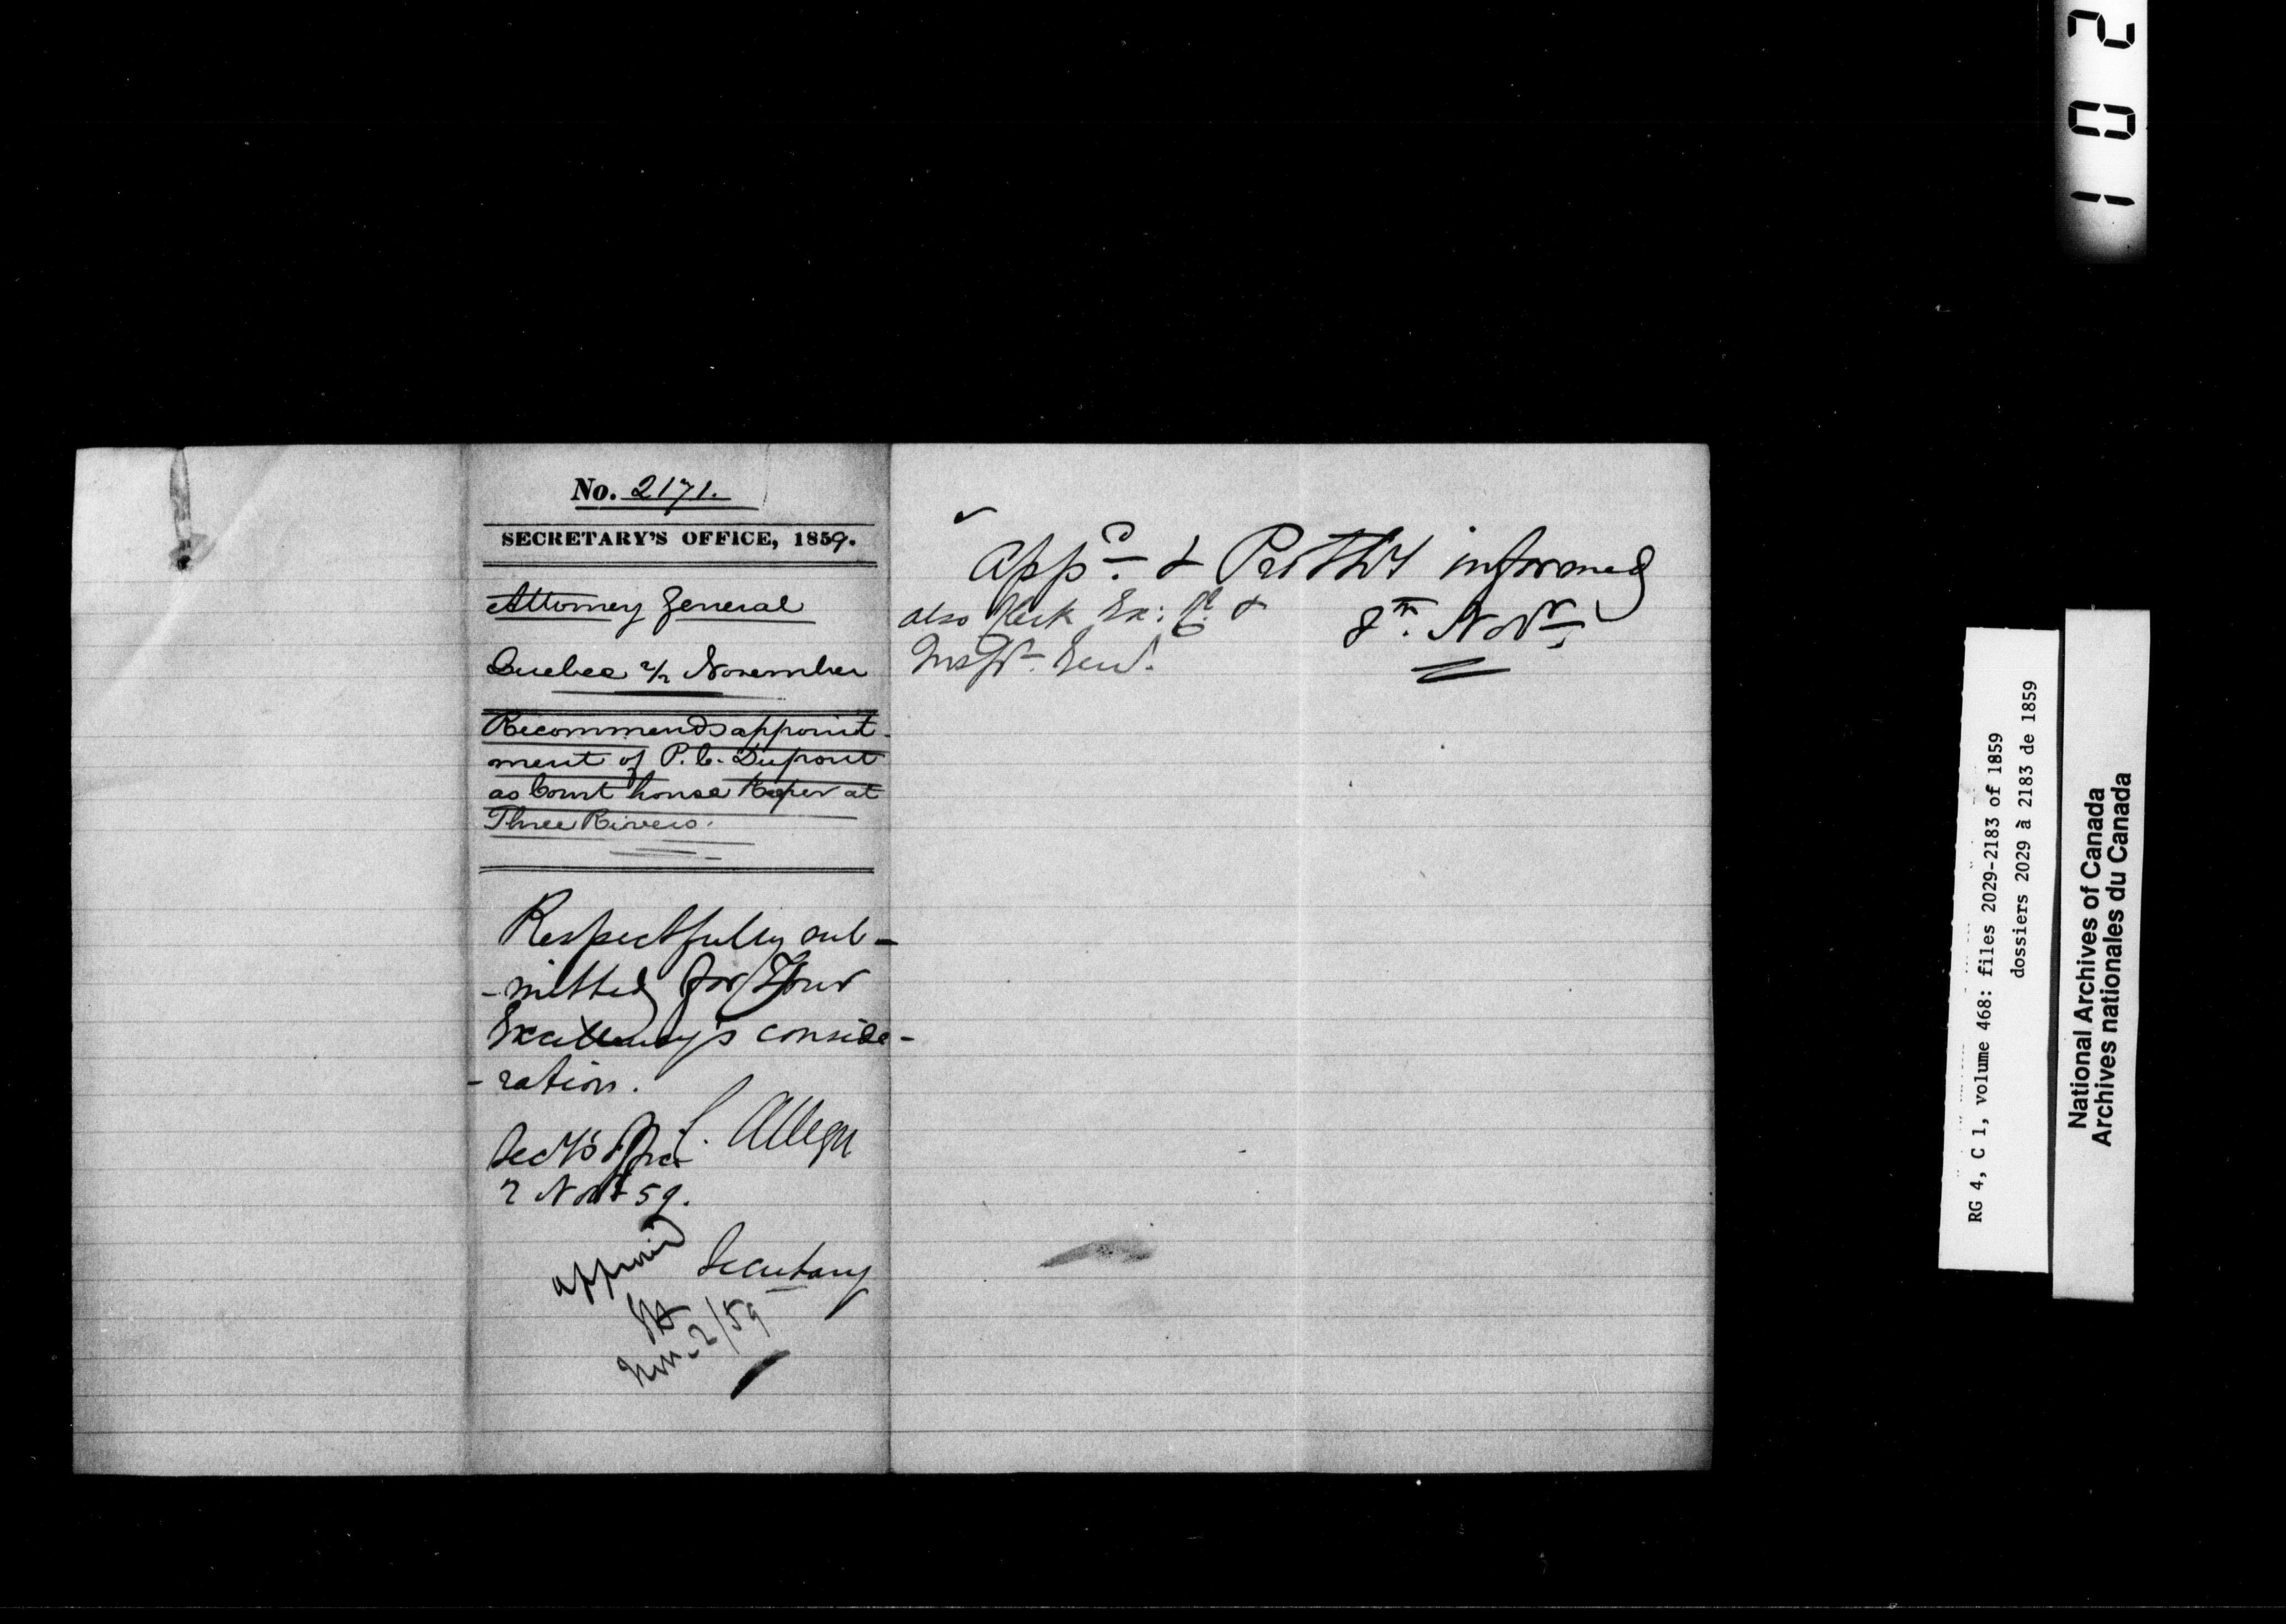 No. 2171.
SECRETARY'S OFFICE, 1859.
Attorney General
Quebec 2/2 November
Recommends appoint-
ment of P. C. Dupont
as Court house Keeper at
Three Rivers.
Respectfully sub-
-mitted for Your
Excellency's conside-
-ration.
C. Alleyn
Secy's Office
2 Novr 59.
Secretary
approved
Nov. 2/59
Appd. & Prothy informed
8th. Novr.
also Clerk Ex: C. &
Inspr. Genl.
102
RG 4, C 1, volume 468: files 2029-2183 of 1859
dossiers 2029 à 2183 de 1859
National Archives of Canada
Archives nationales du Canada